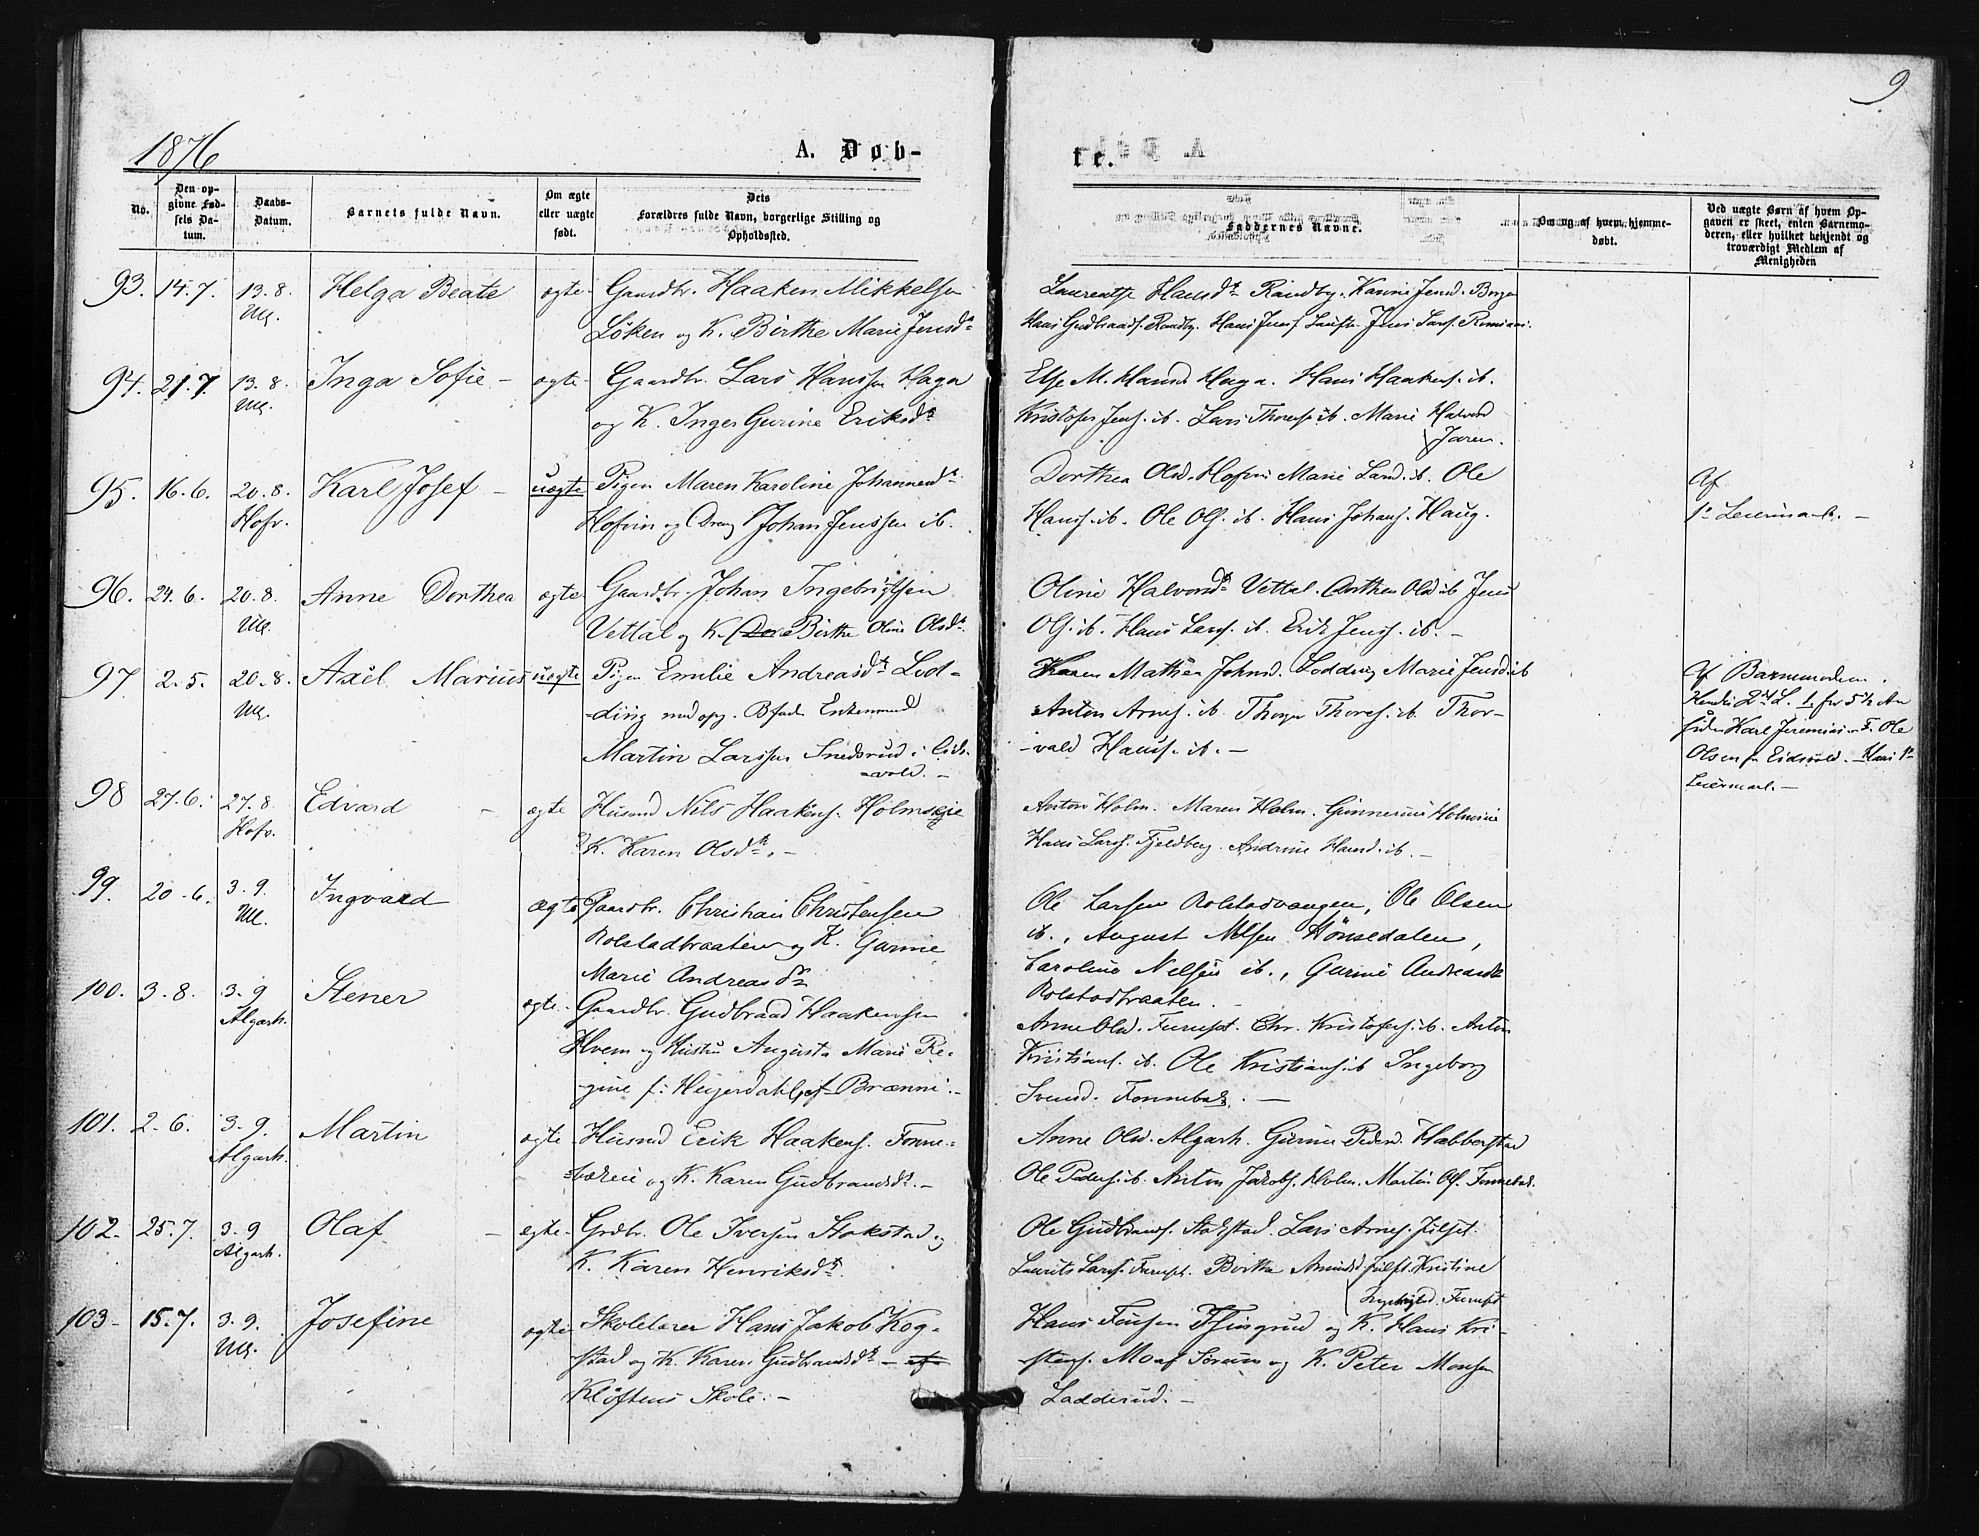 9
1876
A. Døb-
te.
No.
Den opgivne Fødsels Datum.
Daabs-Datum.
Barnets fulde Navn.
Om ægte eller uægte født.
Dets Forældres fulde Navn, borgerlige Stilling og Opholdssted.
Faddernes Navne.
Om og af hvem hjemmedøbt.
Ved uægte Børn af hvem Opgaven er skeet, enten Barnemoderen, eller hvilket bekjendt og troværdigt Medlem af Menigheden
93. 14.7. 13.8. Ull. Helga Beate ægte Gaardbr. Haaken Mikkelsen
Løken og K. Birthe Marie Jensdr
Laurentse Hansdr Randby. Karine Jensd. Borge
Hans Gudbrands. Randby. Hans Jens. Jens Lars.
94. 21.7. 13.8. Ull. Inga Sofie – ægte Gaardbr. Lars Hanssen Haga
og K. Inger Gurine Eriksdr
Else M. Hansd. Haga. Hans Haakens. ib.
Kristofer Jens. ib. Lars Thores. ib. Marie Halvord
Jaren.
95. 16.6. 20.8. Hofv. Karl Josef – uægte Pigen Maren Karoline Johannesdr
Hofvin og Dreng Johan Jenssen ib.
Dorthea Olsd. Hofvin Marie Lars. ib. Ole
Hans. ib. Ole Ols. ib. Hans Johans. Haug.
Af
1ste Leiermaal. –
96. 24.6. 20.8. Ull. Anne Dorthea ægte Gaardbr. Johan Ingebrigtsen
Vettal og K. Birthe Oline Olsdr
Oline Halvorsdr Vettal. Dorthea Olsd. ib. Jens
Ols. ib. Hans Lars. ib. Erik Jens. ib. –
97 2.5. 20.8. Ull. Axel Marius uægte Pigen Emilie Andreasdr Lod-
ding med opg. B.fader Enkemand
Martin Larssen Snedsrud i Eids-
vold. –
Karen Mathea Johnsd. Lodding Marie Jensd. ib
Anton Arnes. ib. Thorger Thores. ib. Thor-
vald Hans. ib. –
Af Barnemoderen.
Hendes 2det L. 1. for 5½ Aar
siden Karl Jeremias. F. Ole
Olsen fra Eidsvold. – Hans 1ste
Leiermaal. –
98 27.6. 27.8. Hofv. Edvard – ægte Husmd Nils Haakens. Holmseie
K. Karen Olsdr. –
Anton Holm. Maren Holm. Gunnerius Holmeie
Hans Lars. Fjeldberg. Andrine Hansd. ib. –
99. 20.6. 3.9. Ull. Ingvard ægte Gaardbr. Christian Christensen
Rolstadbraaten og K. Gurine
Marie Andreasdr
Ole Larsen Rolstadvangen, Ole Olsen
ib., August Nilsen Hønsedalen,
Caroline Nilsen ib., Gurine Andreasdr
Rolstadbraaten. –
100. 3.8. 3.9 Algarh. Stener ægte Gaardbr. Gudbrand Haakensen
Hvem og Hustru Augusta Marie Re-
gine f: Heyerdahl af Brænni. –
Anne Olsd. Furuset. Chr. Kristofers. ib. Anton
Kristians. ib. Ole Kristians. ib Ingeborg
Svensd. Fonnebæk. –
101. 2.6. 3.9. Algarh. Martin ægte Husmd Erik Haakens. Fonne-
bækeie og K. Karen Gudbrandsdr. –
Anne Olsd. Algarh. Gurine Pedersd. Habberstad
Ole Peders. ib. Anton Jakobs. Holm. Martin Ols. Fonnebæk.
102. 25.7. 3.9 Algarh. Olaf – ægte Grdbr. Ole Iversen Stokstad og
K. Karen Henriksdr
Ole Gudbrands. Stokstad. Lars Arnes. Julset.
Laurits Lars. Furuset. Birthe Amundsd. Julset. Kristine
Furuset
103 15.7. 3.9. Ull. Josefine ægte Skolelærer Hans Jakob Kog-
stad og K. Karen Gudbrandsdr –
Kløftens Skole. –
Hans og K. Hans Kri-
stens. Moaf Sørum og K. Peter Monsen
Ladderud. –